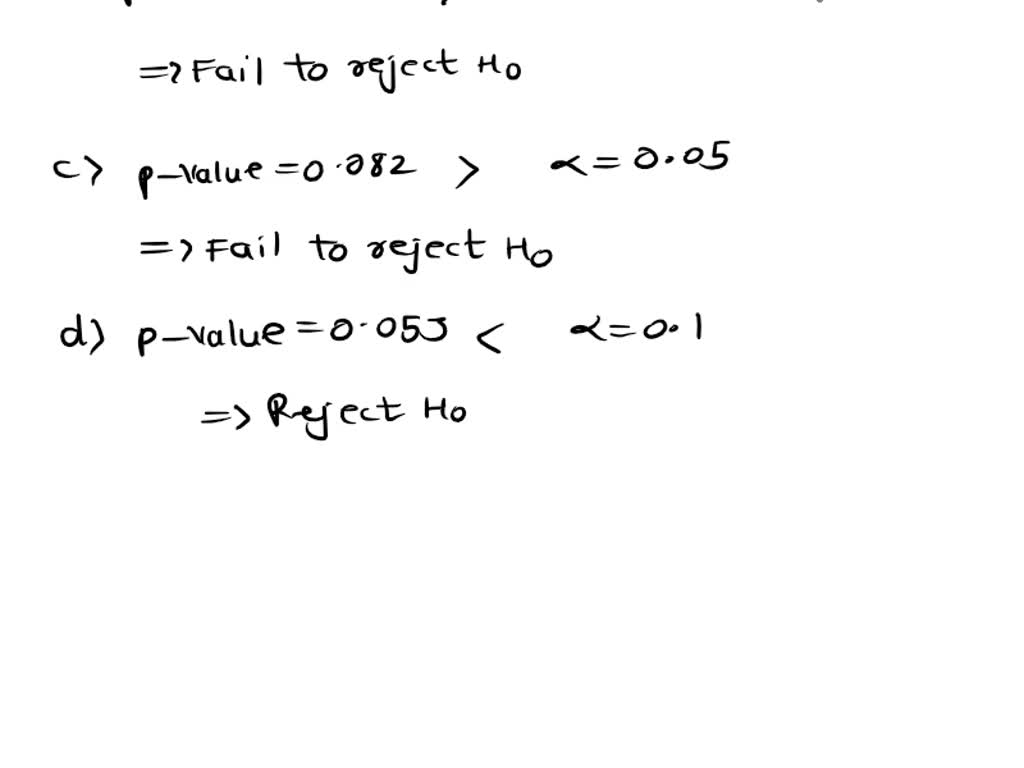 => Fail to reject H0
c) p-value = 0.082 > α = 0.05
=> Fail to reject H0
d) p-value = 0.055 < α = 0.1
=> Reject H0